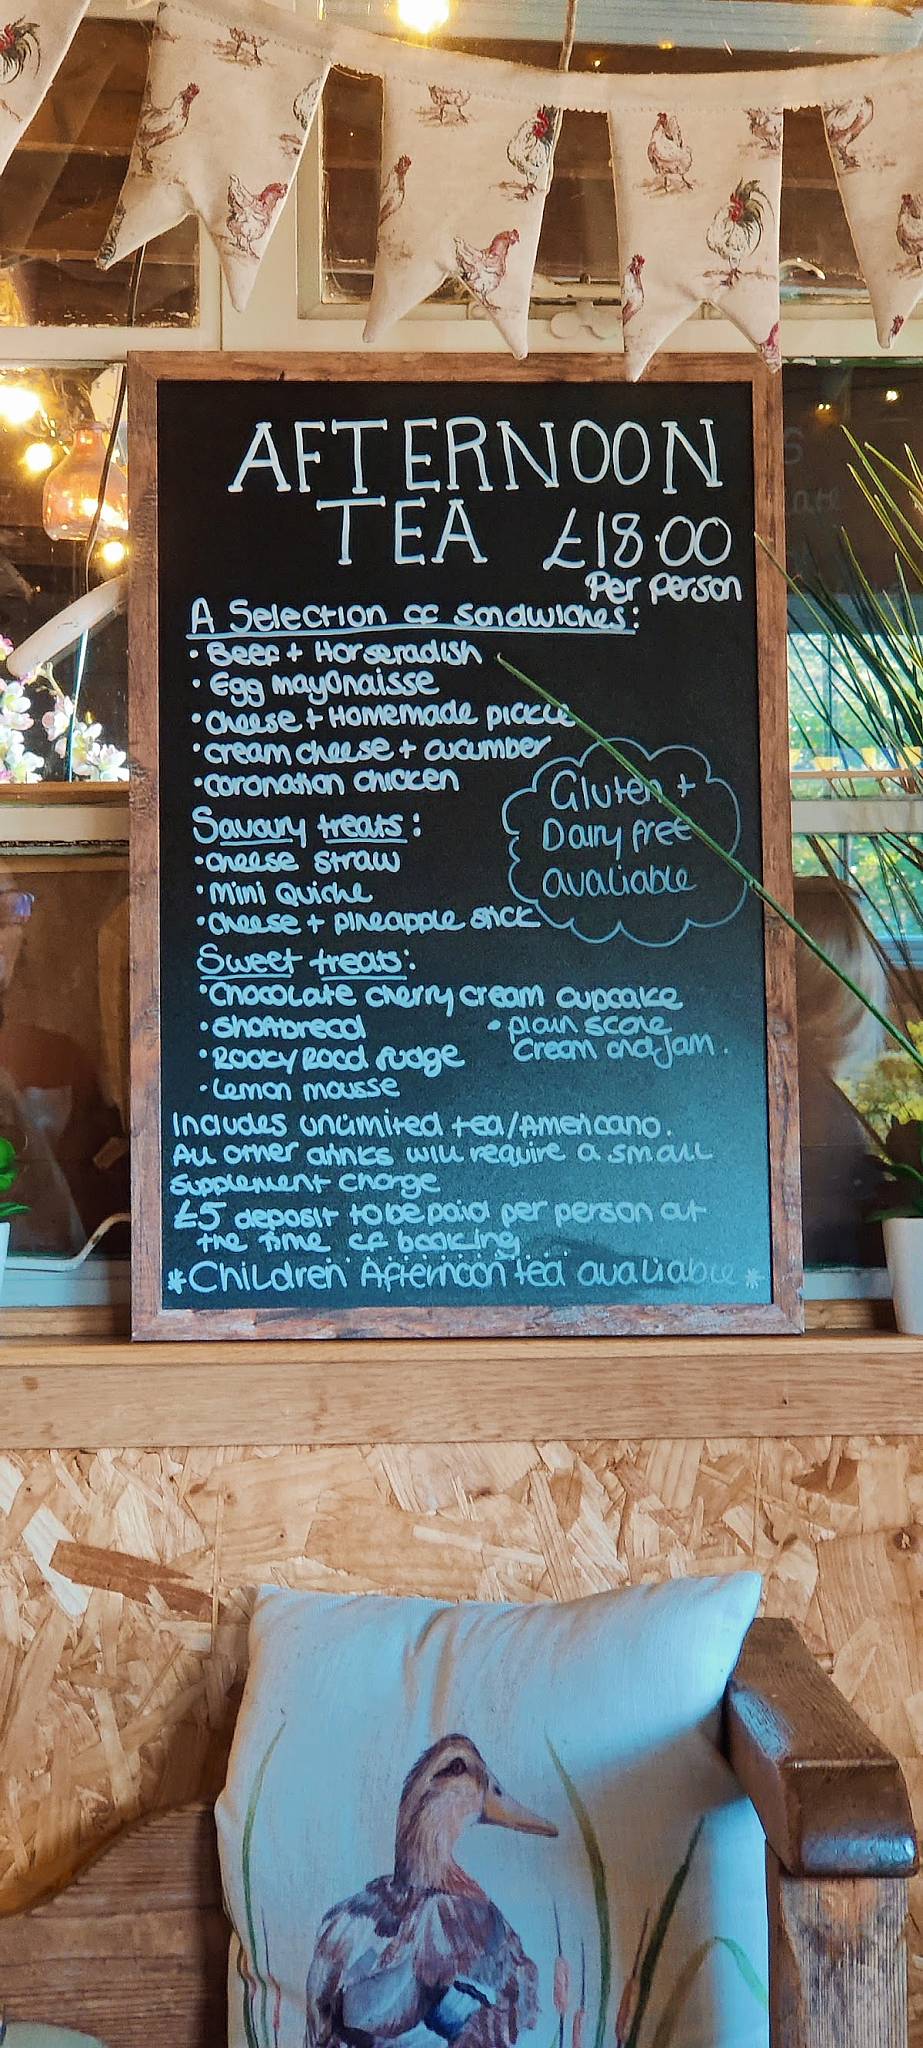 AFTERNOON
TEA £18.00
Per person
A Selection of sandwiches:
• Beef + Horseradish
• Egg mayonaisse
• Cheese + Homemade pickle
• cream cheese + cucumber
• coronation chicken
Savoury treats:
• cheese straw
• Mini Quiche
• Cheese + pineapple stick
Gluten +
Dairy free
avaliable
Sweet treats:
• Chocolate cherry cream cupcake
• Shortbread
• Rocky Road fudge
• Lemon mousse
• plain scone
cream and jam.
Includes unlimited tea/Americano.
All other drinks will require a small
supplement charge
£5 deposit to be paid per person at
the time of booking
*Children Afternoon tea avaliable*